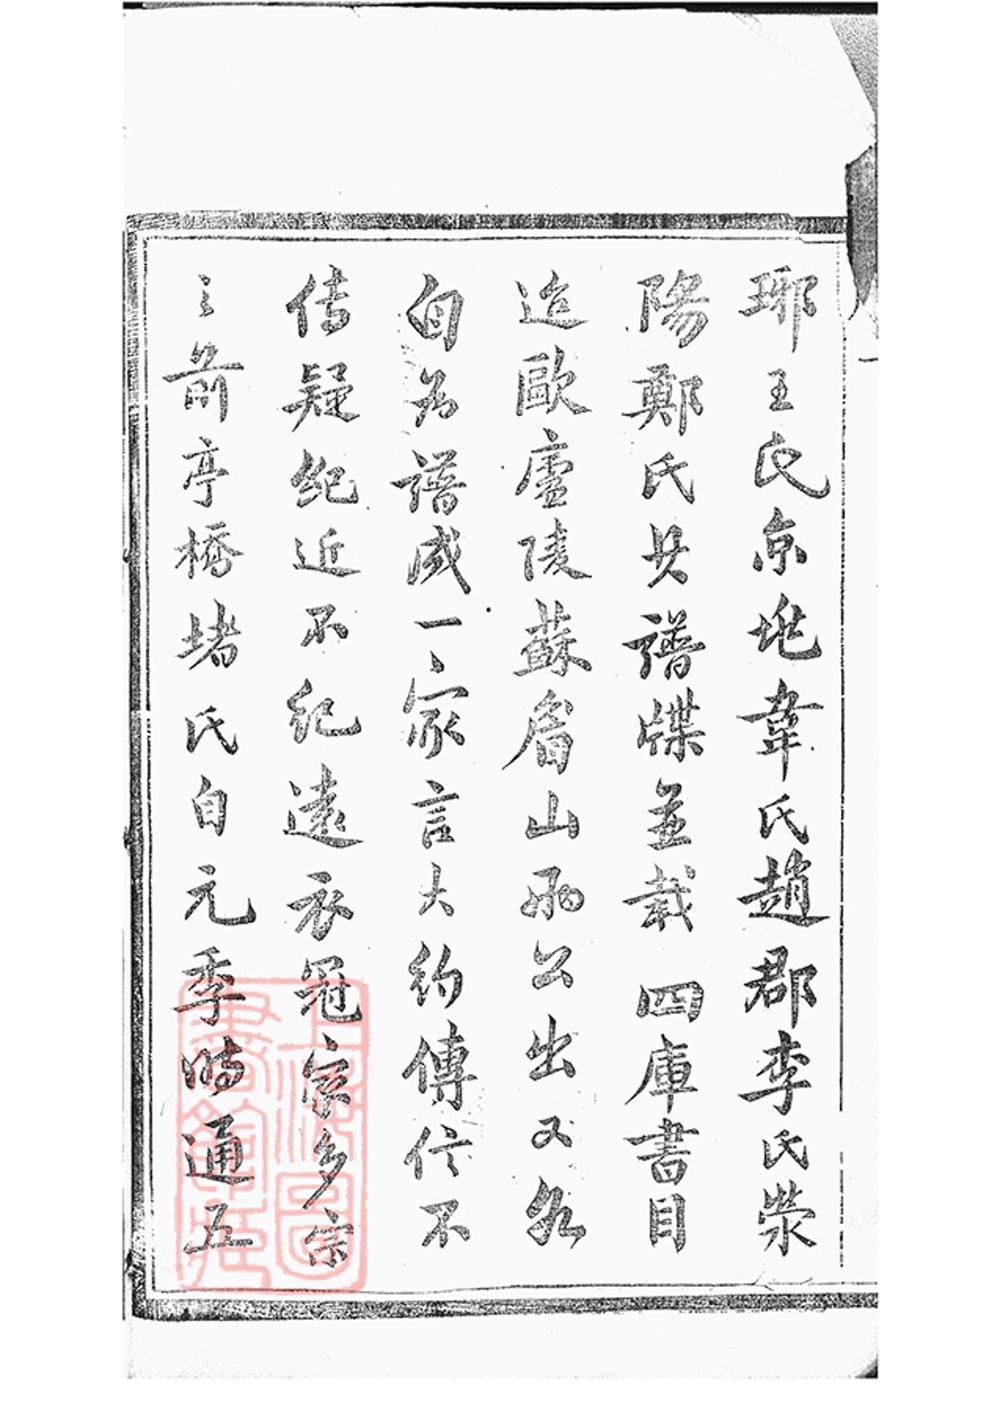 瑯王氏京兆韋氏趙郡李氏滎
陽鄭氏其譜牒並載　四庫書目
迨歐廬陵蘇眉山兩公出又各
自為譜成一家言大約傳信不
傳疑紀近不紀遠衣冠家多宗
之前亭橋堵氏自元季時通五
上海圖書館藏